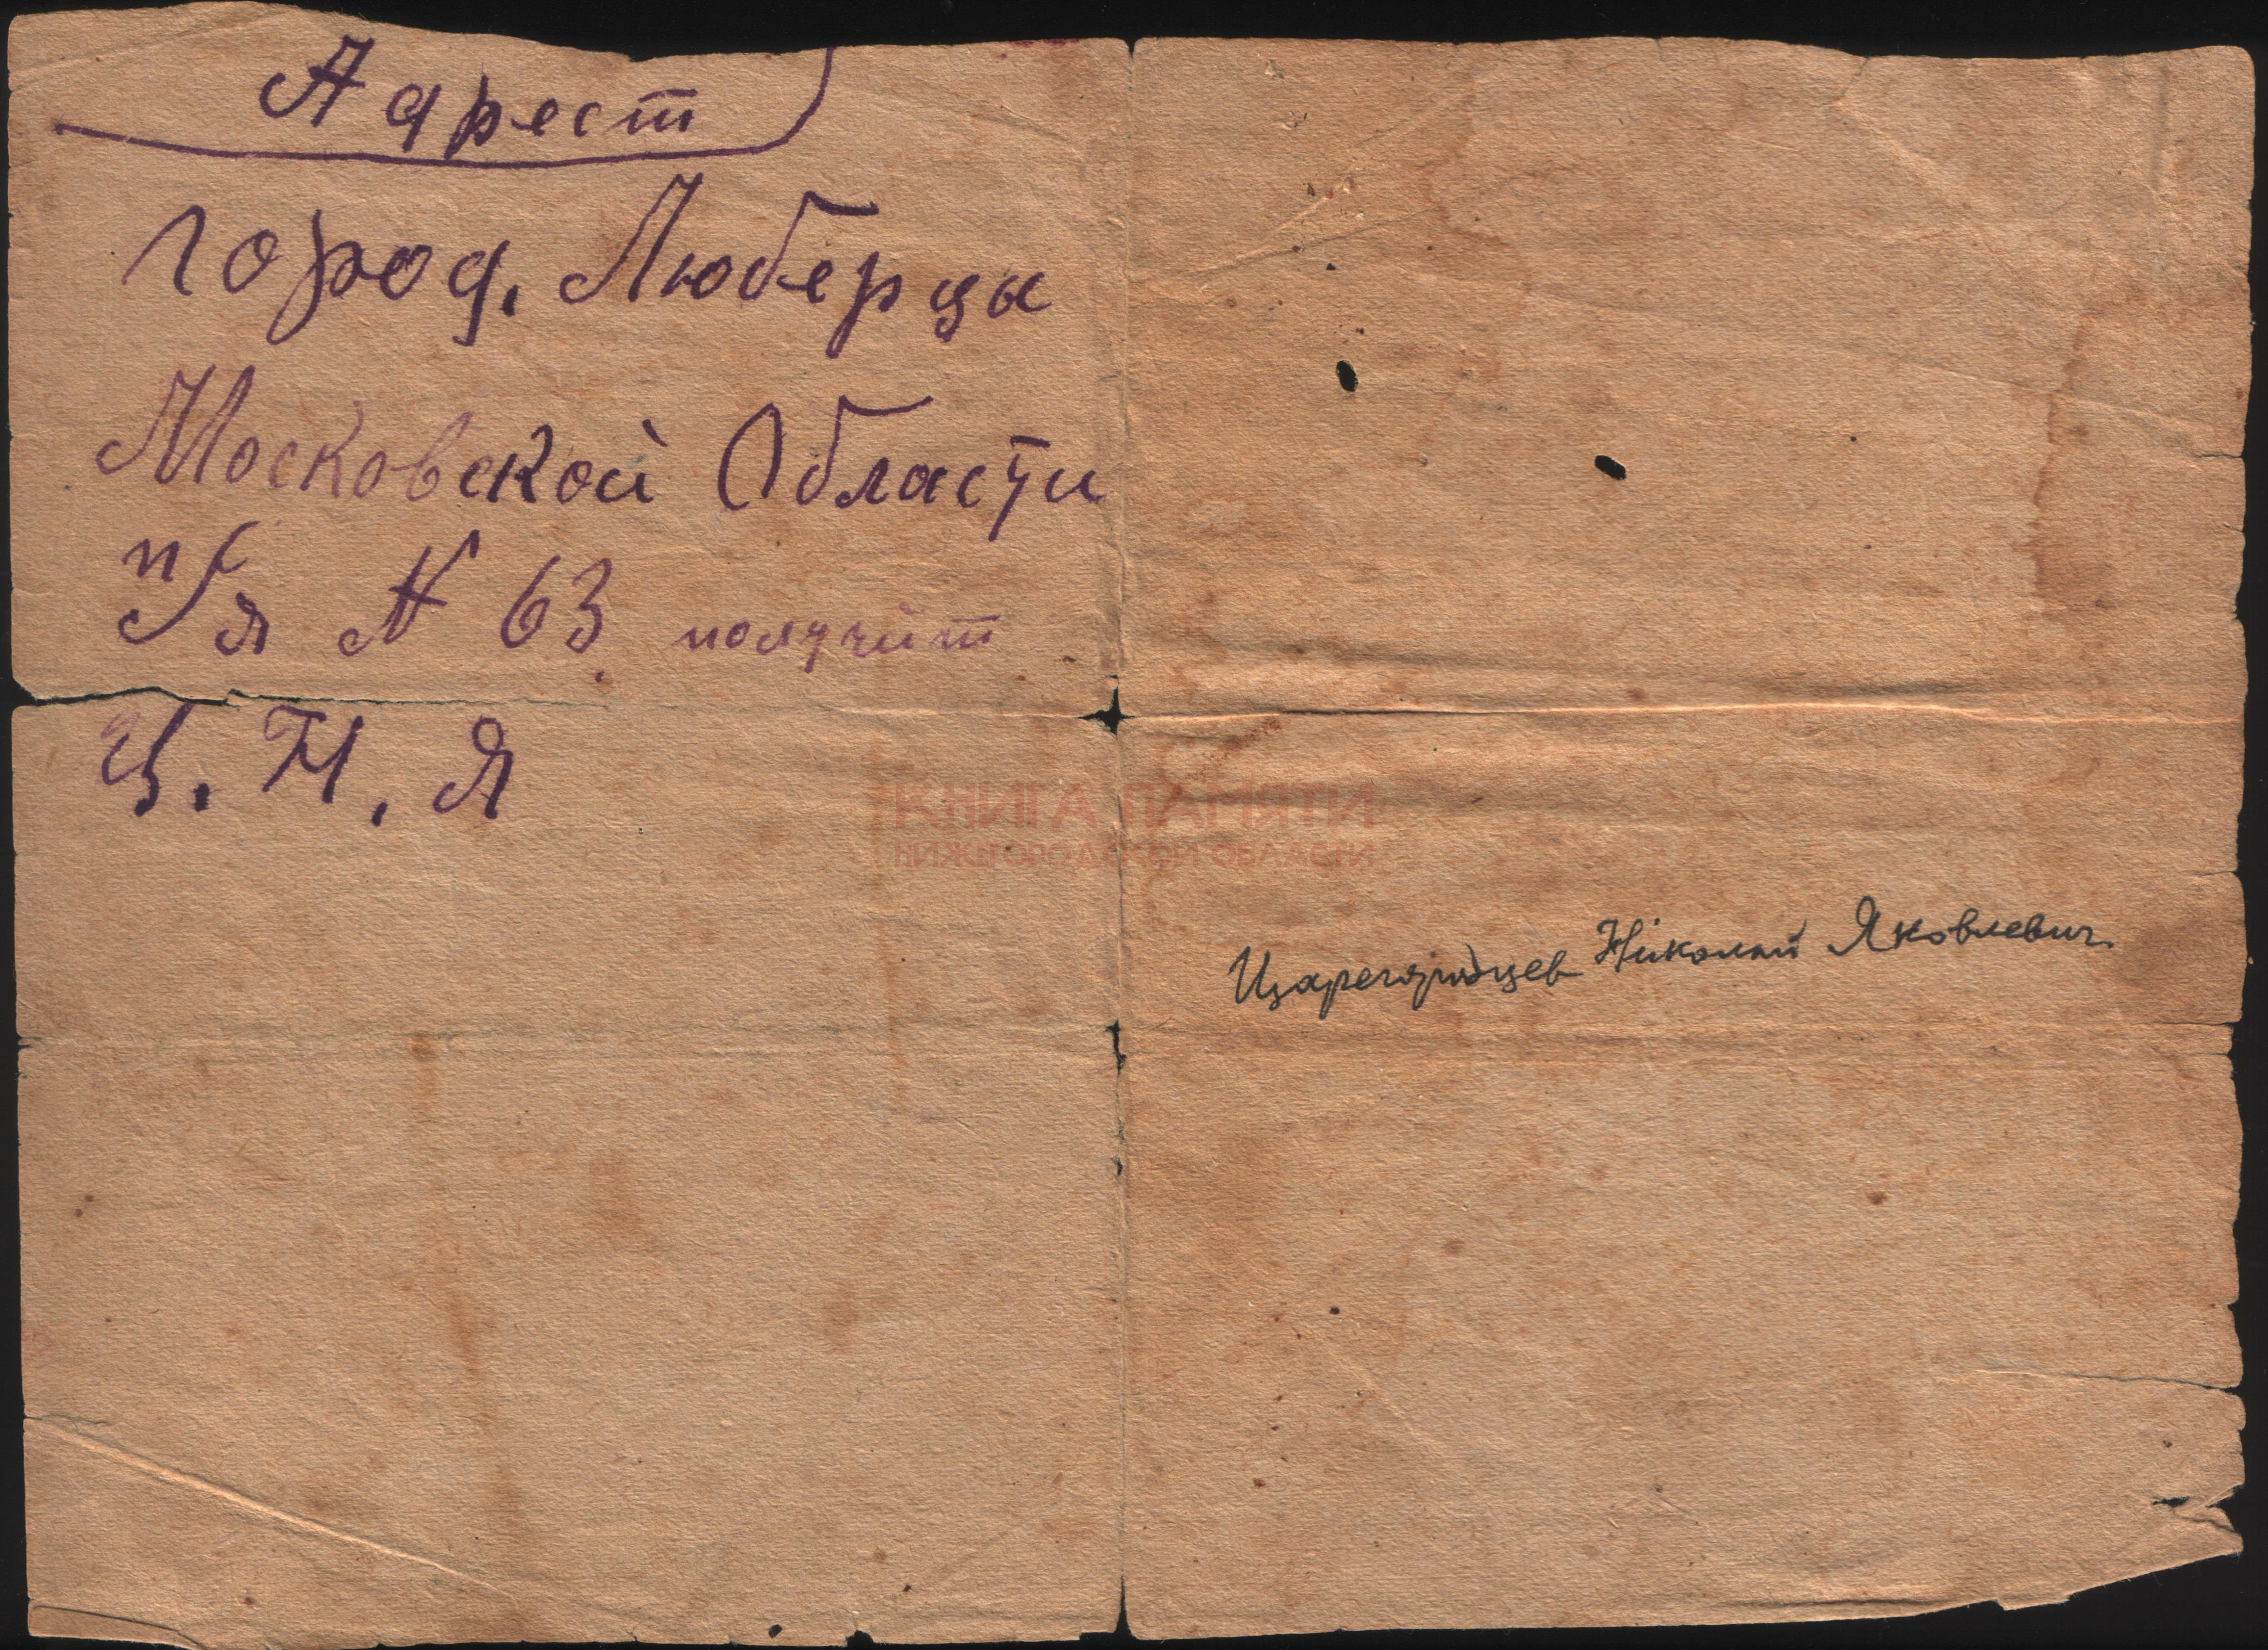 Адрест
город. Люберцы
Московской Области
п/я N 63 получит
Ц. Н. Я
КНИГА ПАМЯТИ
НИЖЕГОРОДСКОЙ ОБЛАСТИ
Царегородцев Николай Яковлевич.